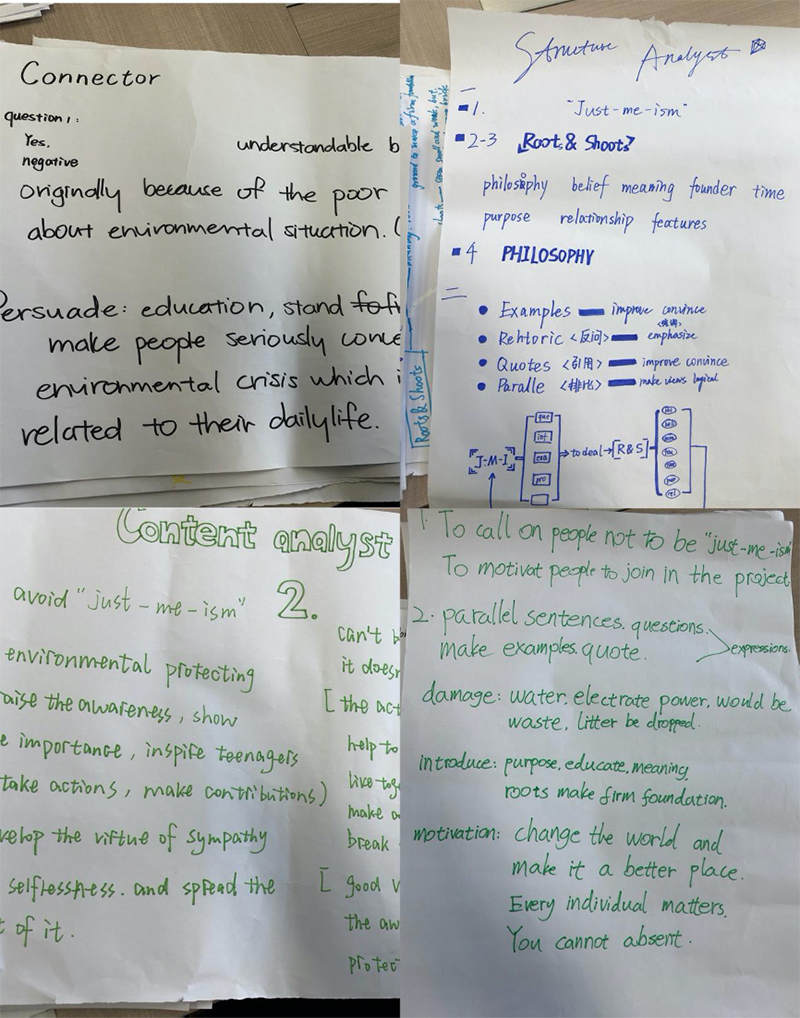 Connector
question 1:
Yes.
understandable b
negative
originally because of the poor
about environmental situation. (
Persuade: education, stand
make people seriously conce
environmental crisis which i
related to their dailylife.
Structure Analyst
一
1. "Just-me-ism"
2-3 「Roots & Shoots」
philosophy belief meaning founder time
purpose relationship features
4 PHILOSOPHY
二
Examples improve convince
Rehtoric <反问> emphasize
<强调>
Quotes <引用> improve convince
Paralle <排比> make views logical
que
inf
exa
pro
[J-M-I] to deal [R&S]
Roots & Shoots
Content analyst
avoid "just-me-ism" 2.
can't b
environmental protecting
it doesn
aise the awareness, show
[ the act
e importance, inspire teenagers
help to
take actions, make contributions)
like toge
make a
velop the virtue of sympathy
break
selflessness. and spread the
[ good v
t of it.
the aw
protec
1. To call on people not to be "just-me-ism"
To motivat people to join in the project
2. parallel sentences. questions.
make examples. quote.
expressions.
damage: water. electrate power, would be
waste, litter be dropped.
introduce: purpose, educate, meaning,
roots make firm foundation.
motivation: change the world and
make it a better place.
Every individual matters.
You cannot absent.